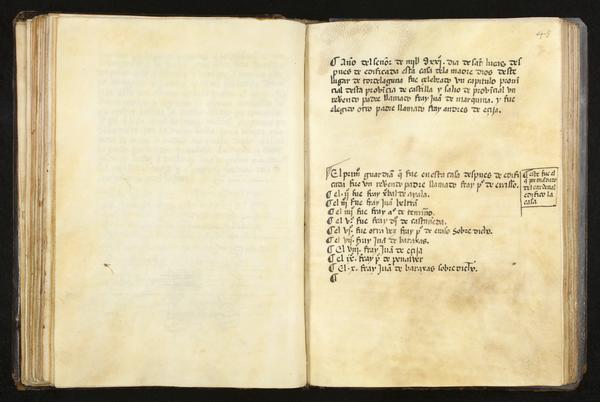 48
¶ Año del señor de mill dxxj. dia de sāt lucas, des
pues de edificada esta casa dela madre dios deste
lugar de tordelaguna fue celebrado vn capitulo provī
cial desta provīcia de castilla y salio de provīcial vn
reverēdo padre llamado fray juā de marquina. y fue
elegido otro padre llamado fray andres de ecija.
El prim̄ guardiā q̄ fue en esta casa despues de edifi
cada fue vn reverēdo padre llamado fray p̄ de
¶ el .ij. fue fray de ayala.
¶ el iij fue fray Juā beltrā
¶ el iiij fue fray aº de
¶ el v. fue fray de castañeda.
¶ el vj. fue otra vez fray p̄ de sobre dicho.
¶ el vij. fray Juā de baraxas.
¶ El viij. fray Juā de ecija
¶ el ix. fray p̄ de penalver
¶ El .x. fray juā de baraxas sobre dicho.
¶
¶ este fue el
q̄ por mādado
del cardenal
edifico la
casa